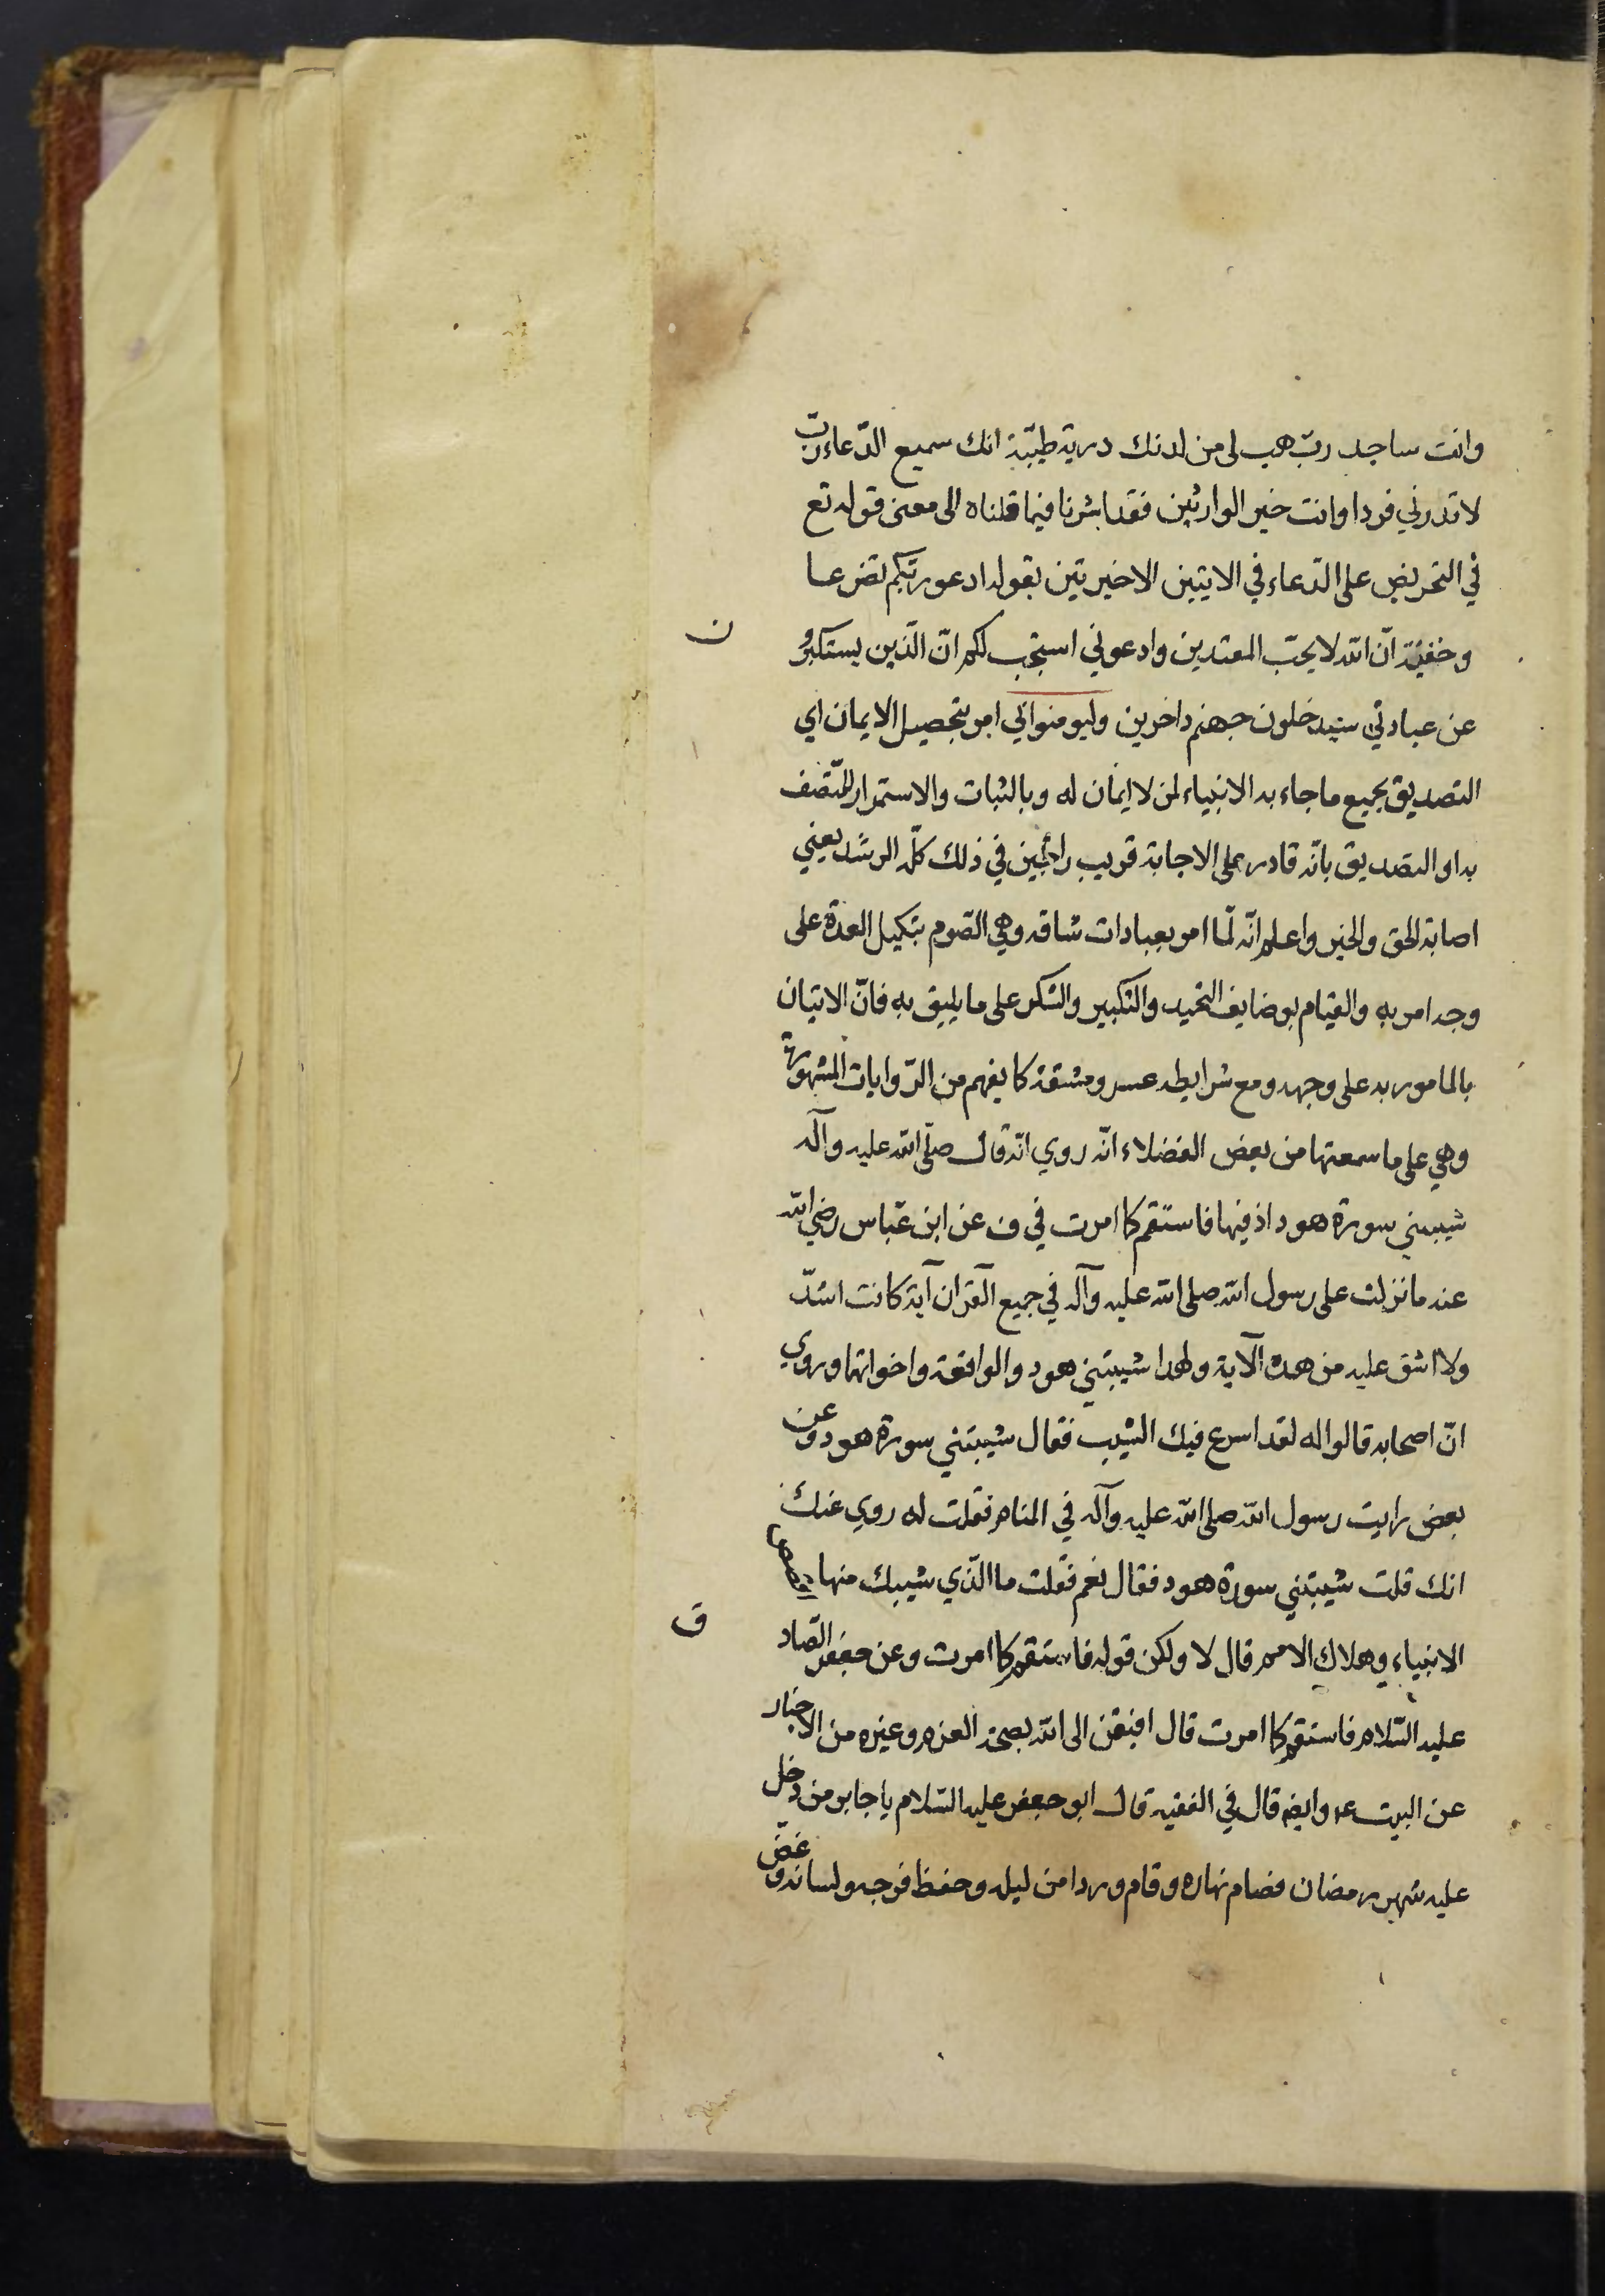 وانت ساجد ربّ هب لى من لدنك درية طيّبة انك سميع الدّعاء ربّ
لا تدرني فردا وانت خير الوارثين فقد اشرنا فيما قلناه الى معنى قوله تع
في التحريض على الدّعاء في الايتين الاخيرتين بقوله ادعو ربّكم تضرعا
وخفيّة انّ الله لا يحبّ المعتدين وادعوني استجب لكم انّ الّذين يستكبرون
عن عبادتي سيدخلون جهنم داخرين وليومنوا بي امر بتحصيل الايمان اي
التصديق بجميع ما جاء به الانبياء لمن لا ايمان له وبالثبات والاستمرار للمتّصف
به او التصديق بانّه قادر على الاجابة قريب راجين في ذلك كلّه الرشد يعني
اصابة الحق والخير واعلم انّه لمّا امر بعبادات شاقه وهي الصّوم بتكيل العدة على
وجه امر به والقيام بوضايف التحميد والتكبير والشكر على ما يليق به فانّ الاتيان
بالمامور به على وجهه ومع شرايطه عسر ومشقة كما يفهم من الرّوايات المشهورة
وهي على ما سمعتها من بعض الفضلاء انّه روي انّه قال صلّى الله عليه وآله
شيبتني سورة هود اذ فيها فاستقم كما امرت في ف عن ابن عبّاس رضي الله
عنه ما نزلت على رسول الله صلى الله عليه وآله في جميع القرآن آية كانت اشدّ
ولا اشق عليه من هده الآية ولهدا شيبتني هود والواقعة واخواتها وروي
انّ اصحابه قالوا له لقد اسرع فيك الشيب فقال شيبتني سورة هود وعن
بعض رايت رسول الله صلى الله عليه وآله في المنام فقلت له روي عنك
انك قلت شيبتني سورة هود فقال نعم فقلت ما الّذي شيبك منها
الانبياء وهلاك الامم قال لا ولكن قوله فاستقم كما امرت وعن جعفر الصّادق
عليه السّلام فاستقم كما امرت قال افتقر الى الله بصحّة العزم وغيره من الاخبار
عن البيت ع وايضه قال في الفقيه قال ابو جعفر عليه السّلام يا جابر من دخل
عليه شهر رمضان فصام نهاره وقام وردا من ليله وحفظ فرجه ولسانه وغضّ